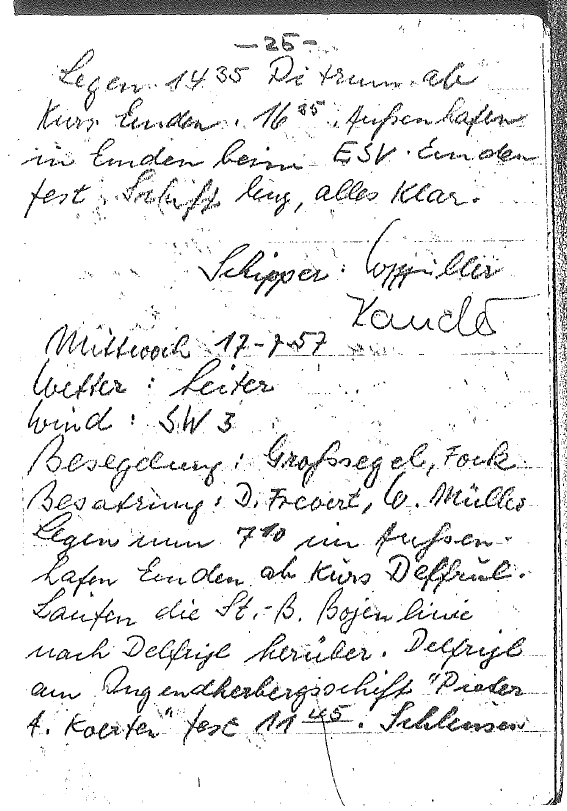 - 25 -
Legen 14 35 Ditzum ab
Kurs Emden. 16 35 Außenhafen
in Emden beim ESV. Emden
fest. Schiff leng, alles Klar.
Schipper: W Müller
Mittwoch 17-7-57
Wetter: heiter
Wind: SW 3
Besegelung: Großsegel, Fock
Besatzung: D. Frevert, W. Müller
Legen um 7 10 im Außen-
hafen Emden ab Kurs Delfzul.
Laufen die St.-B. Bojenlinie
nach Delfzijl herüber. Delfzijl
am Jugendherbergsschiff "Pieter
A. Koerten" fest 11 45. Schleusen